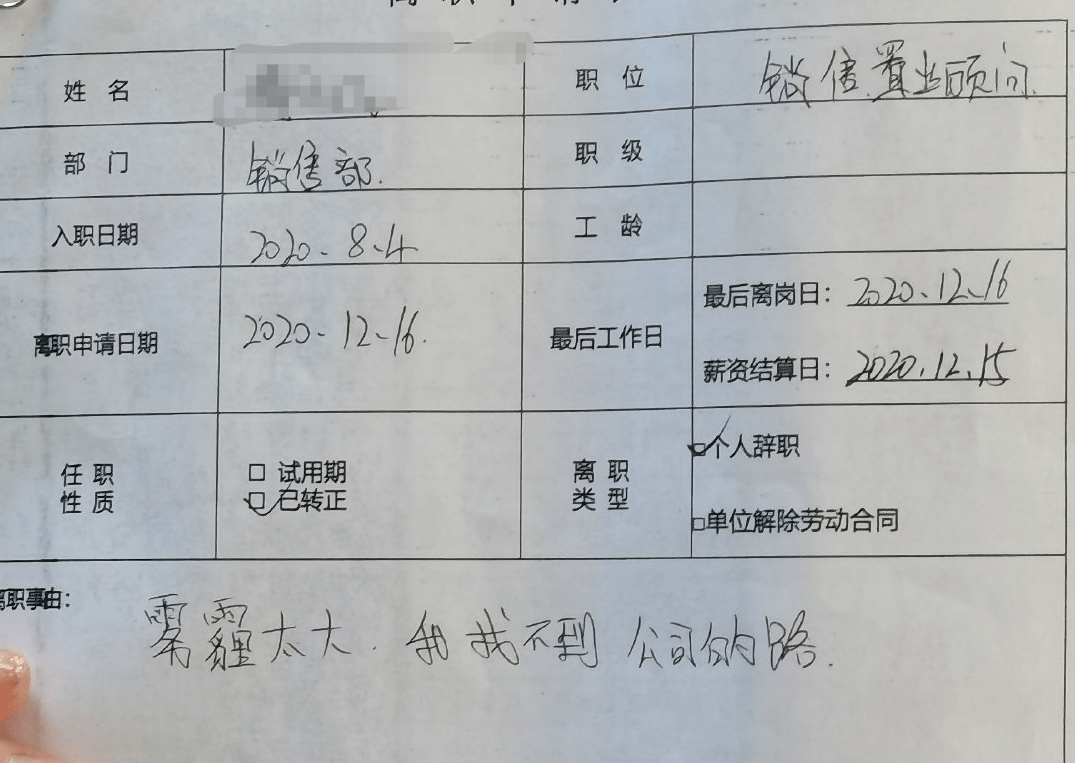 离职申请
姓 名
职 位 销售置业顾问
部 门 销售部.
职 级
入职日期 2020.8.4
工 龄
离职申请日期 2020.12.16.
最后工作日
最后离岗日: 2020.12.16
薪资结算日: 2020.12.15
任 职
性 质
□ 试用期
□ 已转正
离 职
类 型
□个人辞职
□单位解除劳动合同
离职事由:
雾霾太大.我找不到公司的路.